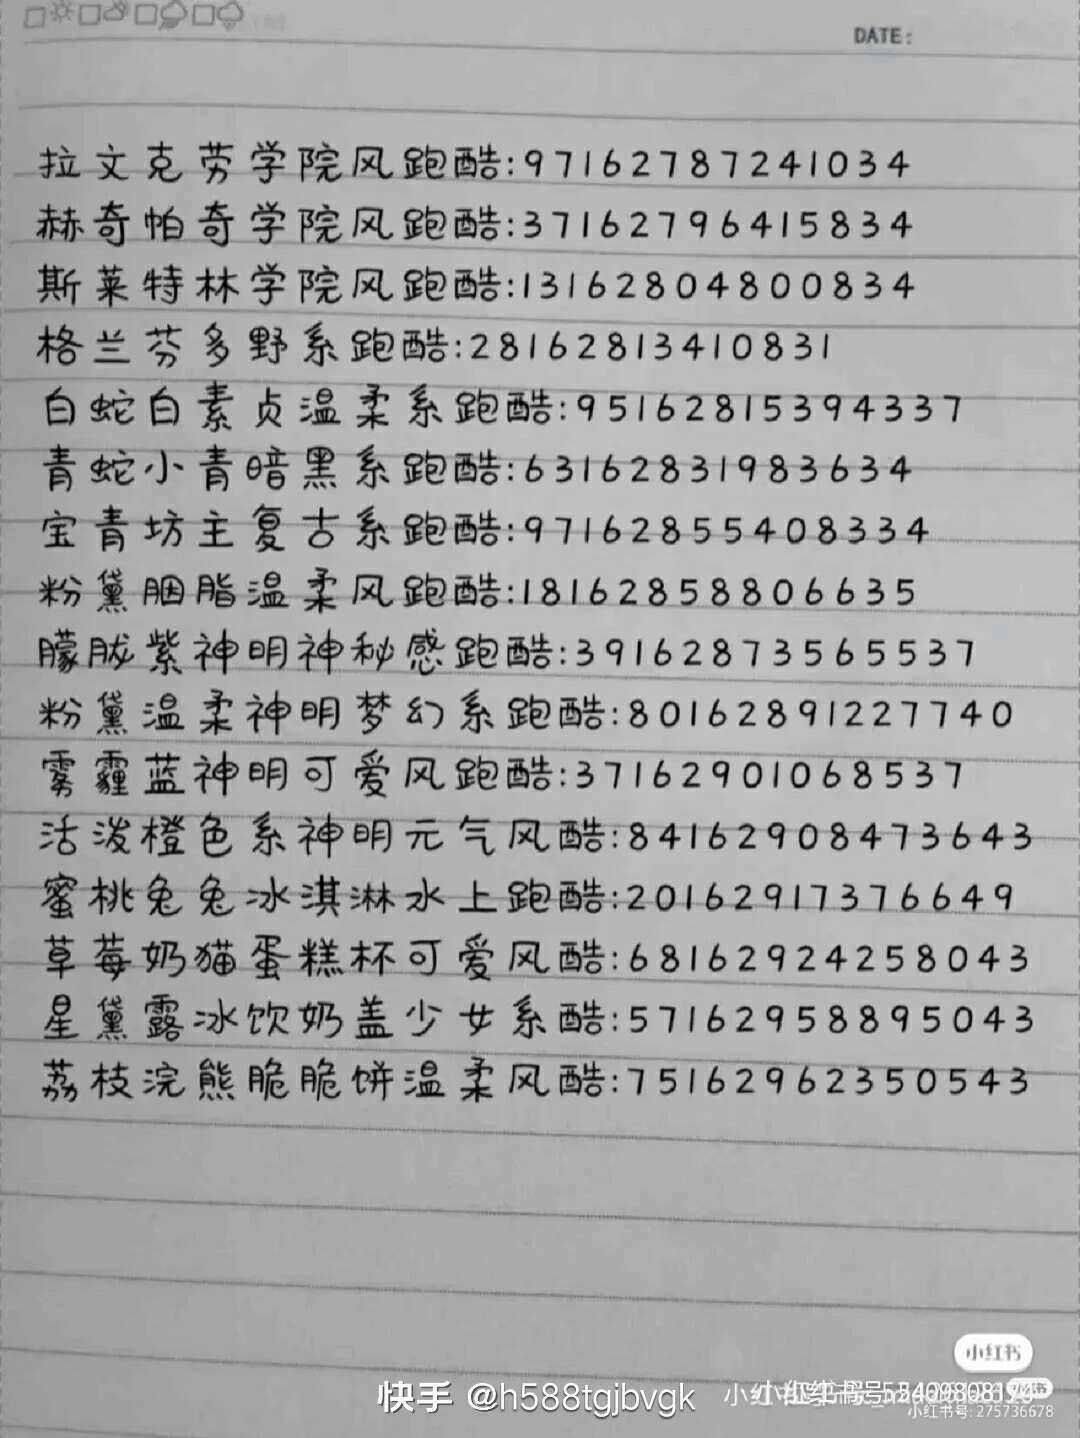 DATE:
拉文克劳学院风跑酷:97162787241034
赫奇帕奇学院风跑酷:37162796415834
斯莱特林学院风跑酷:13162804800834
格兰芬多野系跑酷:28162813410831
白蛇白素贞温柔系跑酷:95162815394337
青蛇小青暗黑系跑酷:63162831983634
宝青坊主复古系跑酷:97162855408334
粉黛胭脂温柔风跑酷:18162858806635
朦胧紫神明神秘感跑酷:39162873565537
粉黛温柔神明梦幻系跑酷:80162891227740
雾霾蓝神明可爱风跑酷:37162901068537
活泼橙色系神明元气风酷:84162908473643
蜜桃兔兔冰淇淋水上跑酷:201629173766649
草莓奶猫蛋糕杯可爱风酷:68162924258043
星黛露冰饮奶盖少女系酷:57162958895043
荔枝浣熊脆脆饼温柔风酷:75162962350543
小红书
快手 @h588tgjbvgk
小红书号: 275736678